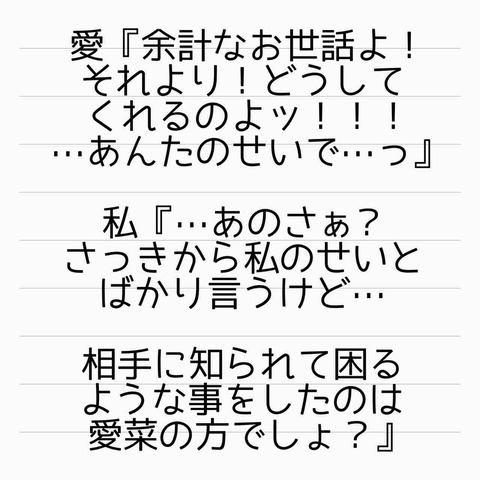 愛『余計なお世話よ！
それより！どうして
くれるのよッ！！！
…あんたのせいで…っ』
私『…あのさぁ？
さっきから私のせいと
ばかり言うけど…
相手に知られて困る
ような事をしたのは
愛菜の方でしょ？』